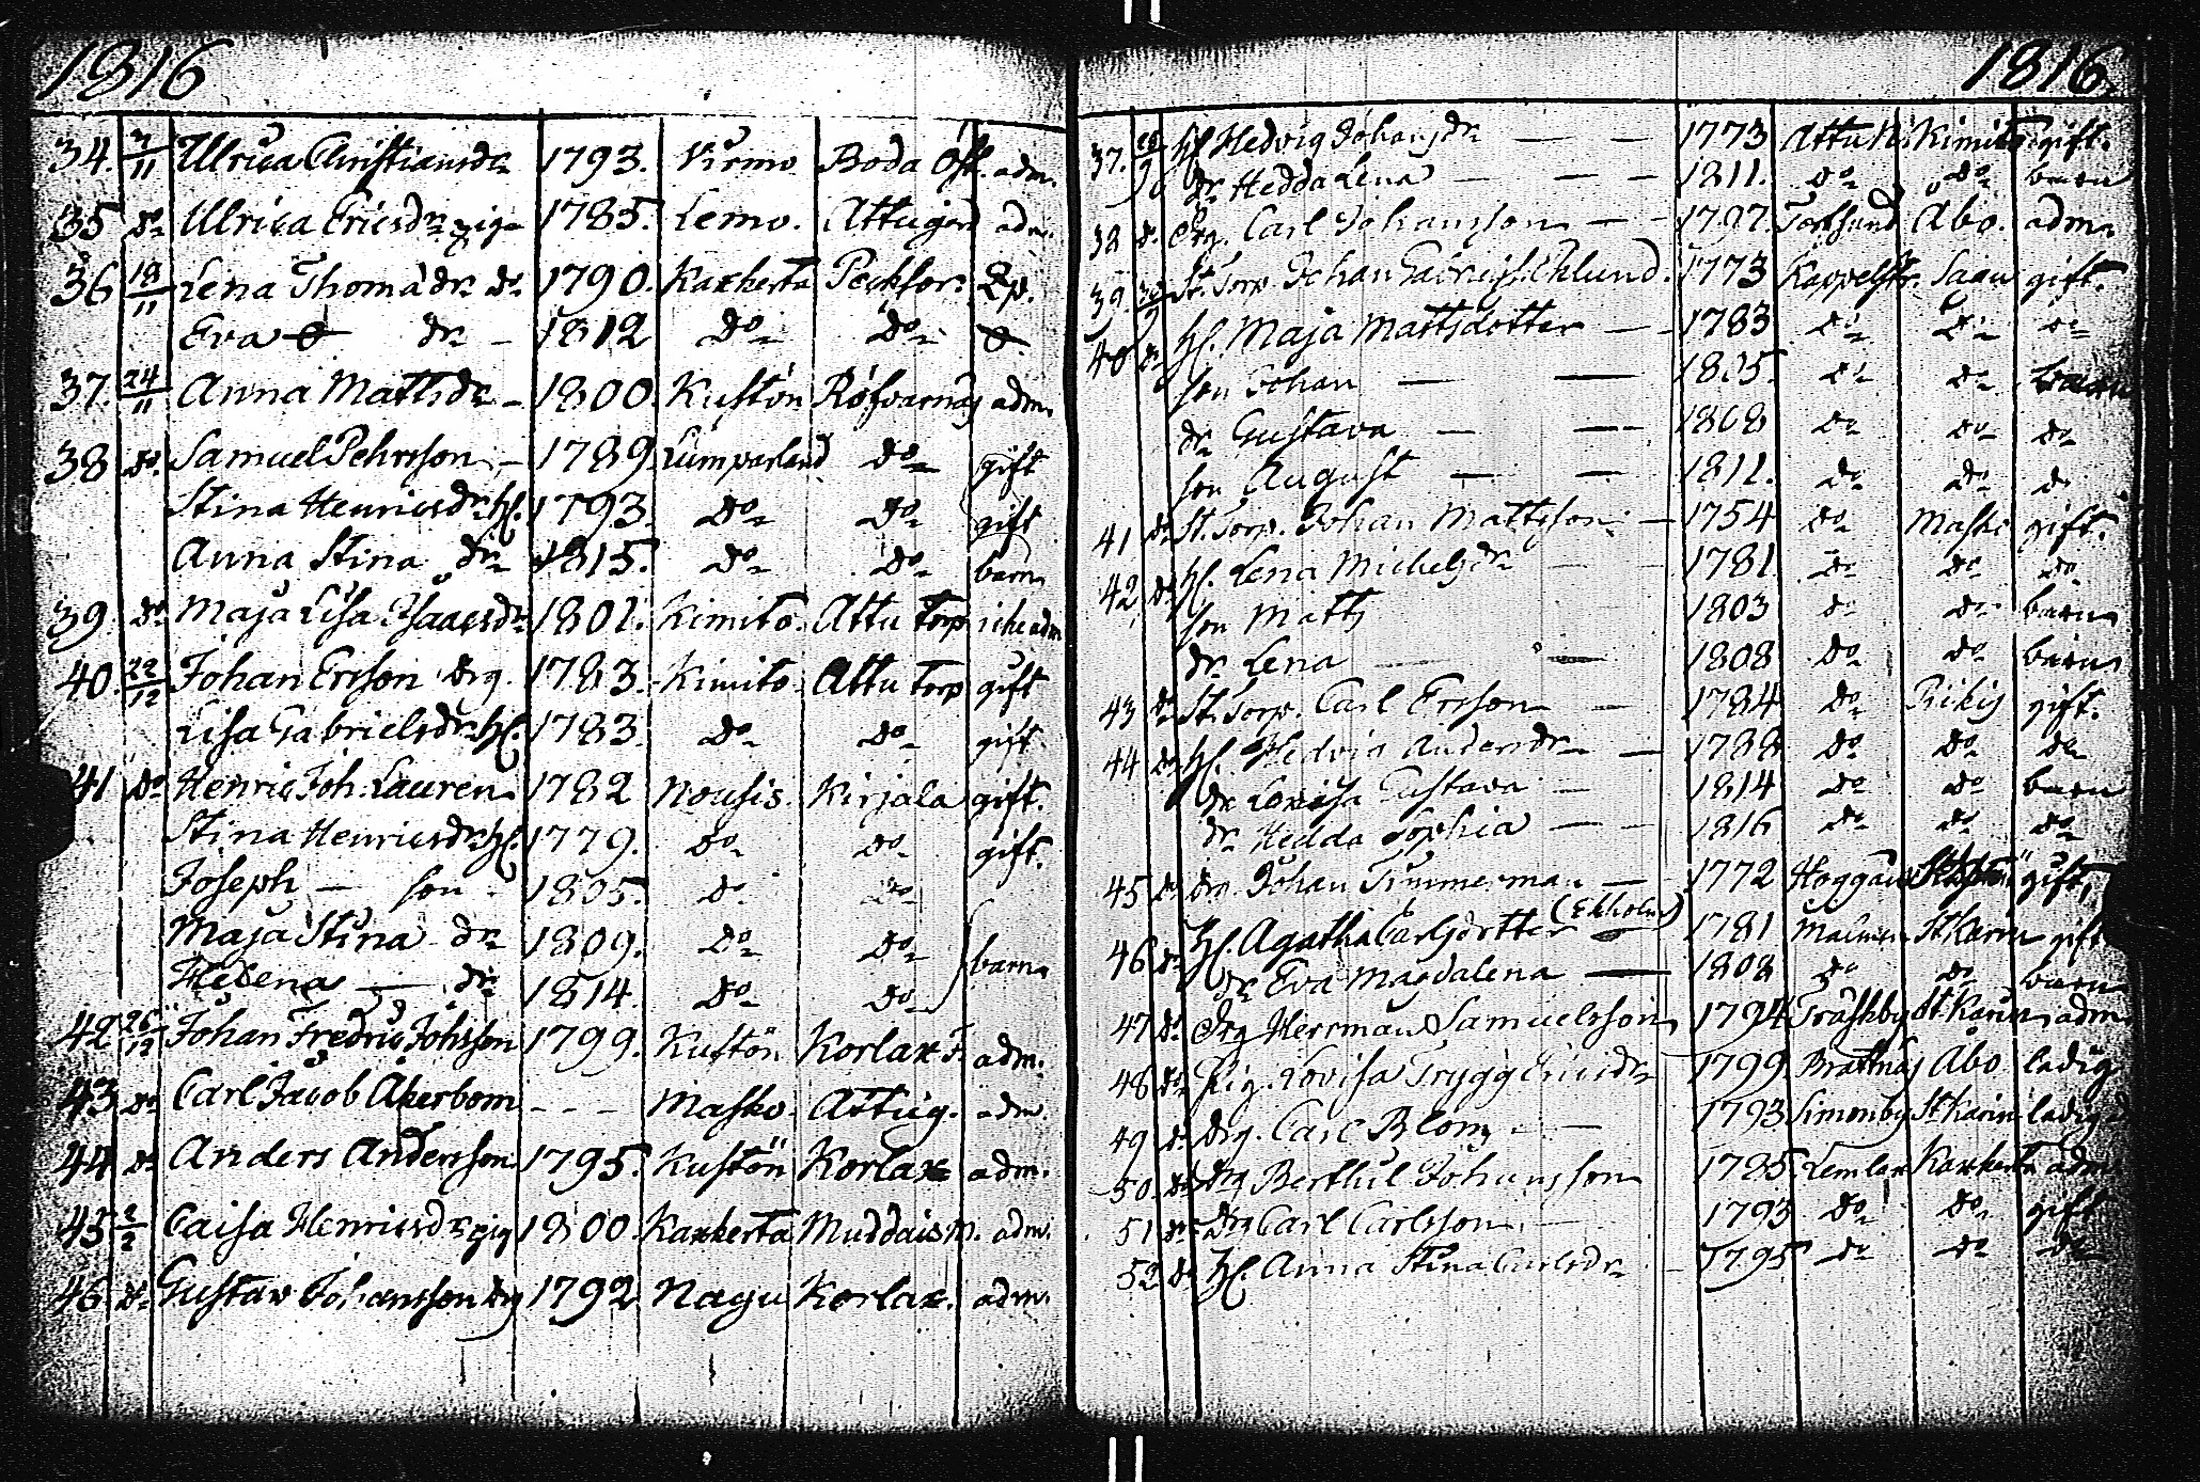 1816
34. 7/11 Ulrica Christiansdr 1793. Virmo Boda Öft. adm.
35 do Ulrica Ericsdr pig. 1785. Lemo. Attugård adm.
36 18/11 Lena Thomædr do 1790. Kaxkerta Peckfor
Eva dr 1812 do do
37. 24/11 Anna Mattsdr 1800. Kustön Röfvarnäs adm.
38 do. Samuel Pehrsson 1789 Lumparland do gift
Stina Henricsdr H. 1793. do do gift
Anna Stina dr 1815. do do barn
39. do Maja Lisa Isaacsdr 1801. Kimito. Attu torp icke adm
40. 22/12 Johan Ersson drg. 1783. Kimito. Attu torp gift
Lisa Gabrielsdr H. 1783. do do gift
41 do Henric Joh: Lauren 1782 Nousis. Kirjala gift.
Stina Henricsdr H. 1779. do do gift.
Joseph — son 1805. do do
Maja Stina dr 1809. do do barn
Helena — dr 1814. do do
42 26/12 Johan Fredric Johsson 1799. Kustön Korlax T. adm.
43 do Carl Jacob Akerbom - - - Masko. Attu g. adm.
44 do Anders Andersson 1795. Kustön Korlax adm.
45 2/2 Caisa Henricsdr pig 1800. Kaxkerta Muddais N. adm.
46 do Gustav Johansson drg 1792. Nagu Korlax. adm.
1816.
37. H. Hedvig Johansdr — — 1773 Attu N. Kimito gift.
dr Hedda Lena — — — 1811. do do barn
38 do Drg. Carl Johansson — — 1797. Torksund Åbo. adm.
39. St. Torp. Johan Gabriels. Eklund. 1773 Kappelstr. Sagu gift.
40 do H. Maja Mattsdotter — 1783 do do do
son Johan — — 1805. do do barn
dr Gustava — — 1808 do do do
son August — — 1811. do do do
41 do St. Torp. Johan Mattsson — 1754 do Masko gift.
42 do H. Lena Michelsdr — 1781 do do do
son Matts 1803 do do barn
dr Lena — — 1808 do do barn
43 do St. Torp. Carl Ersson — 1784 do Rikis gift.
44 do H. Hedvig Andersdr — 1788 do do do
dr Lovisa Gustava — 1814 do do barn
dr Hedda Sophia — 1816 do do do
45 do drg. Johan Timmerman — 1772 Haggais gift,
(Ekholm)
46 do H. Agatha Carlsdotter 1781 Malmen St Karin gift
dr Eva Magdalena — 1808 do do barn
47 do Drg Herrman Samuelsson 1794 Träskby St. Karin adm.
48 do Pig. Lovisa Trygg Ericsdr 1799. Brattnäs Åbo ledig
49 do drg. Carl Blom — — 1793 Simonby St Karin ledig
50. do drg Berthil Johansson 1785. Lemlax Kaxkerta adm
51 do drg Carl Carlsson — 1793 do do gift
52 do H. Anna Stina Carlsdr 1795 do do do